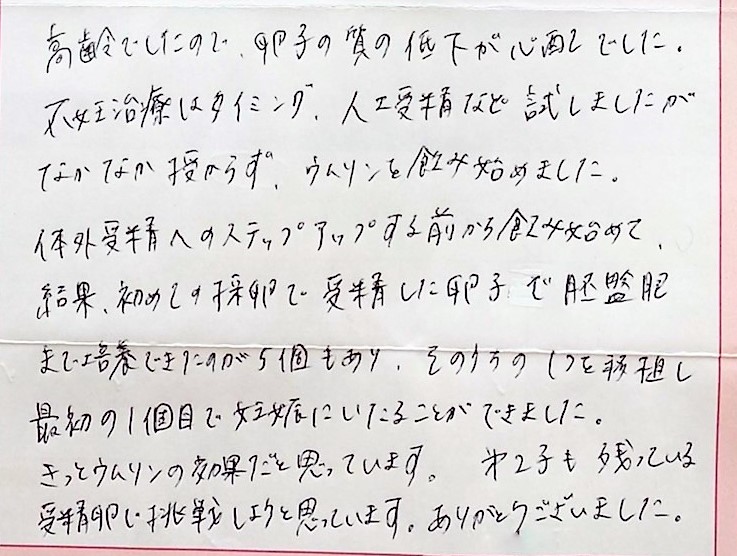 高齢でしたので、卵子の質の低下が心配でした。
不妊治療はタイミング、人工受精など試しましたが
なかなか授からず、ウムリンを飲み始めました。
体外受精へのステップアップする前から飲み始めて、
結果、初めての採卵で受精した卵子で胚盤胞
まで培養できたのが5個もあり、そのうちの1つを移植し
最初の1個目で妊娠にいたることができました。
きっとウムリンの効果だと思っています。 第2子も残っている
受精卵で挑戦しようと思っています。ありがとうございました。